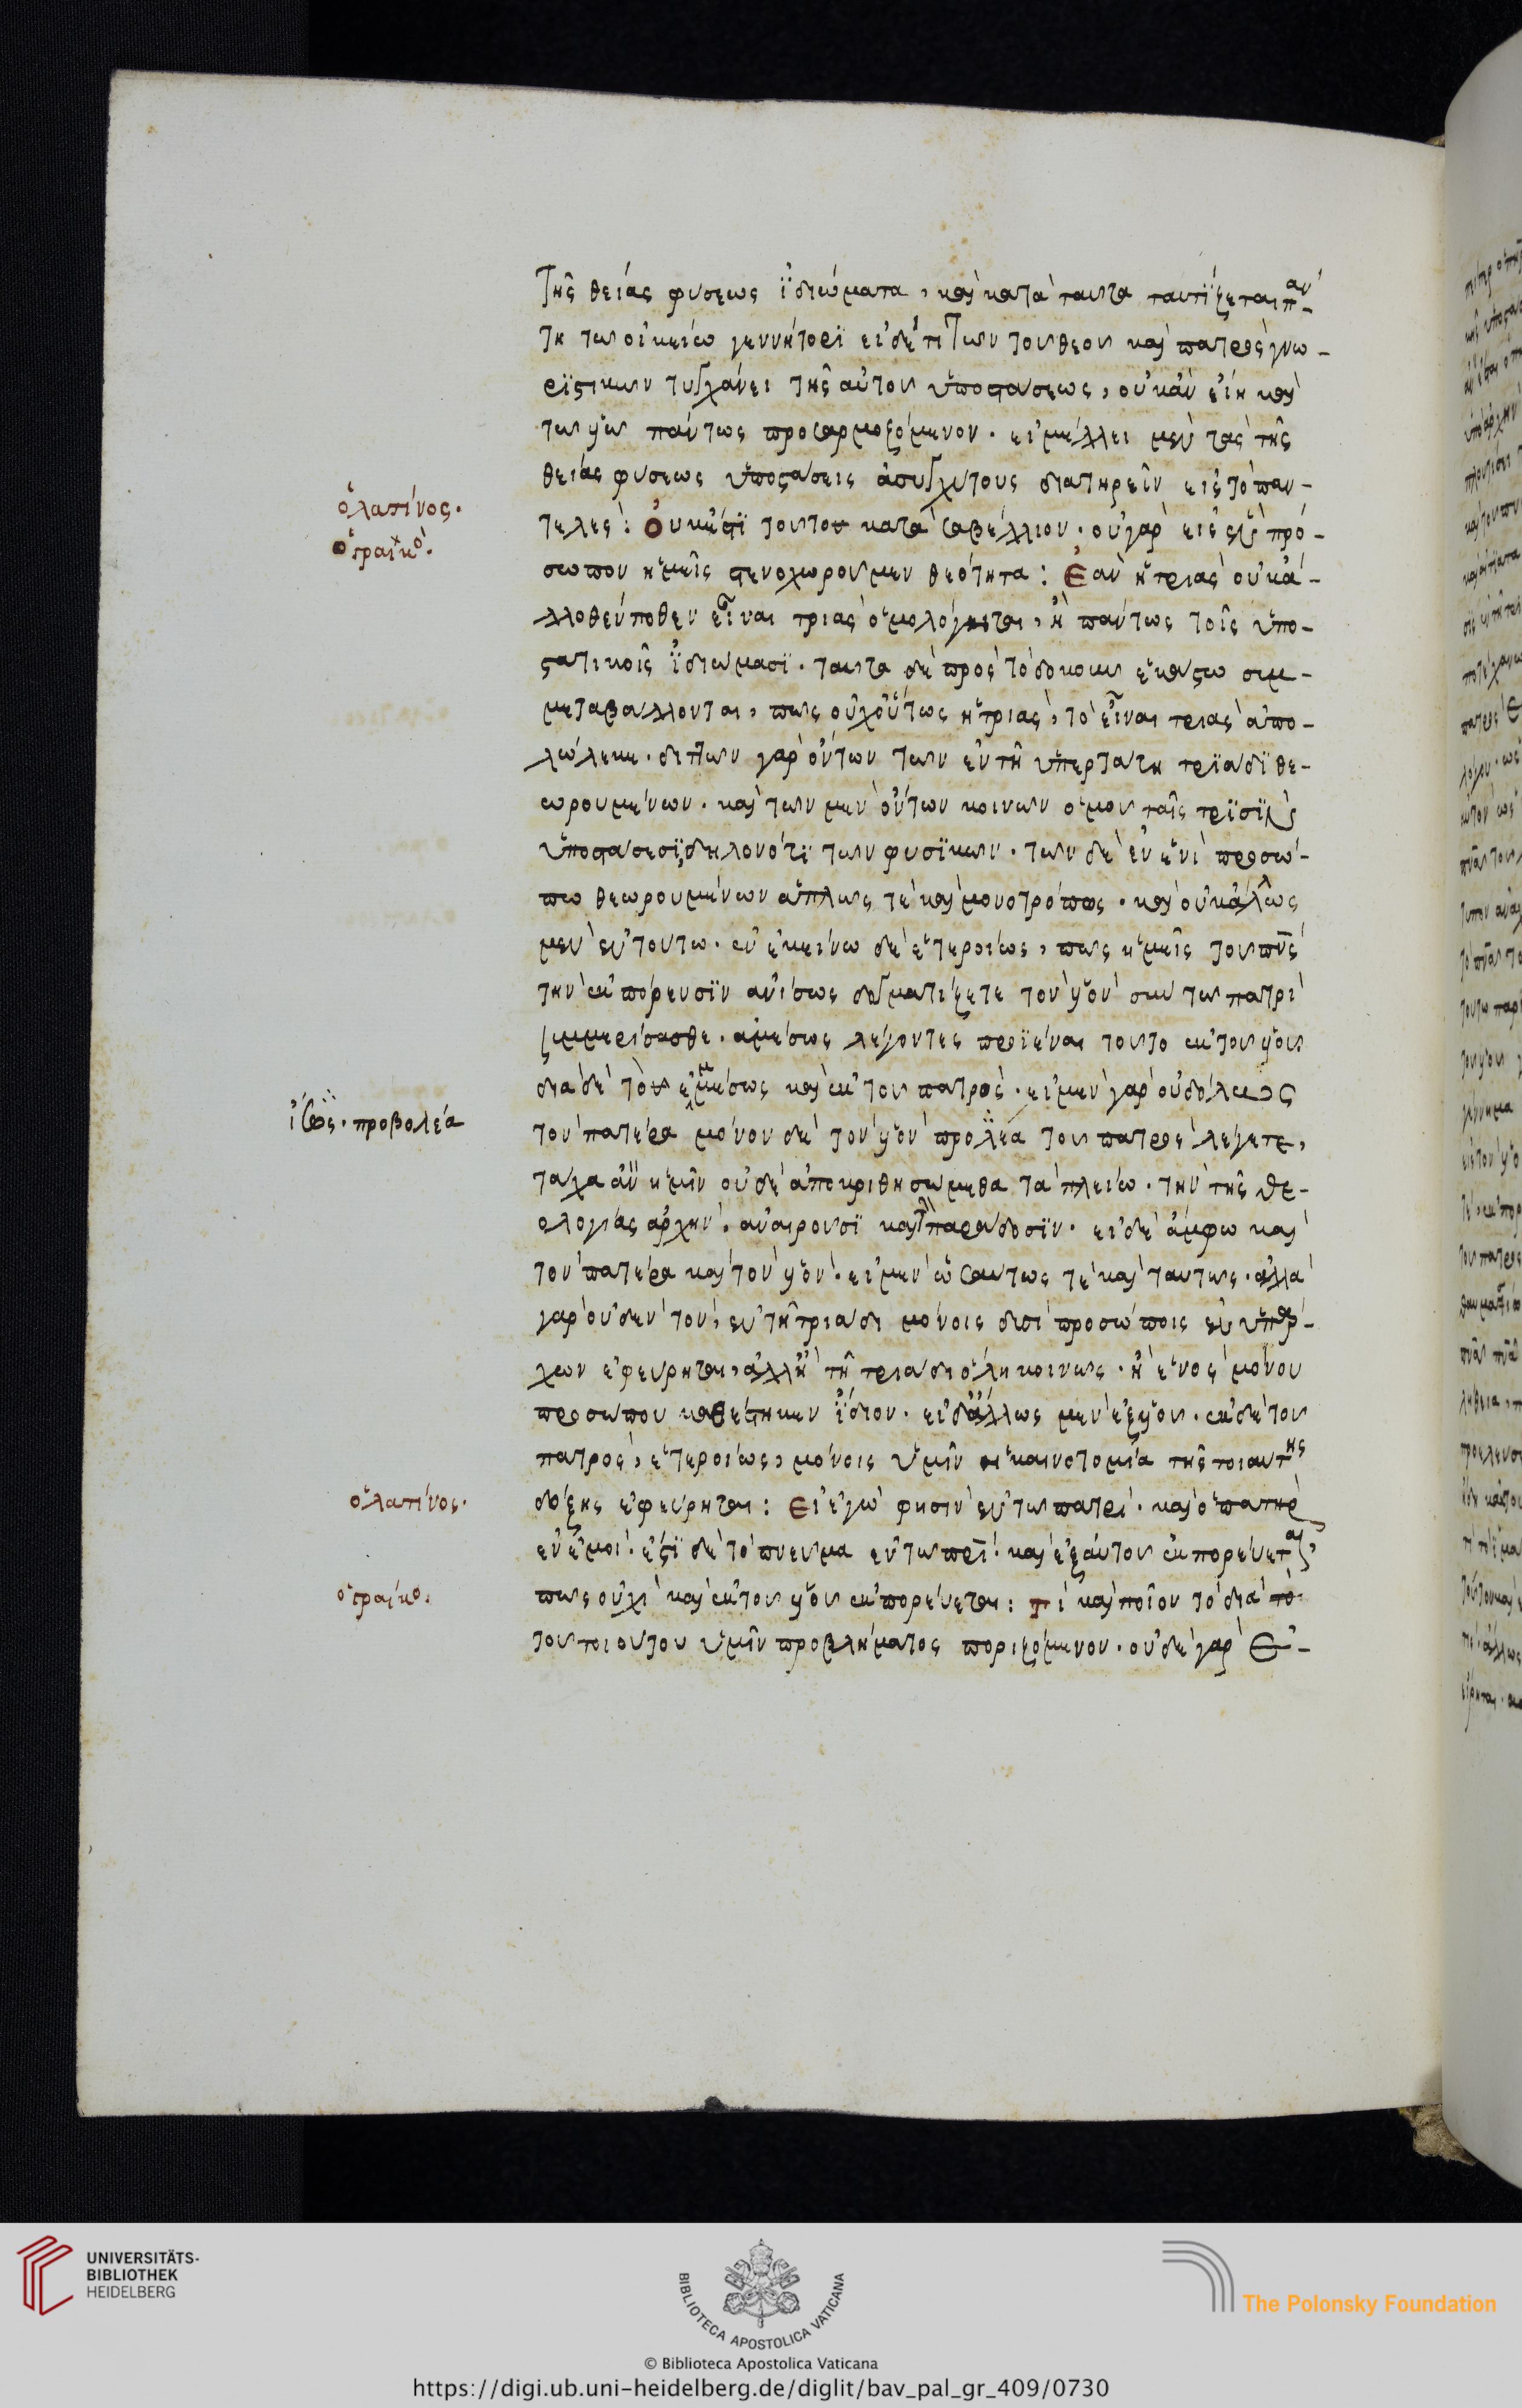 τῆς θείας φύσεως ϊδιώματα, καὶ κατὰ ταυτα ταυτΐζεται παν-
τη τῶ οἰκείω γεννήτορϊ εἰ δέ τι τῶν του θεου καὶ πατρὸς γνω-
ρϊστικῶν τυγχάνει τῆς αὐτου ὑποστασεως, οὐκ ἂν εἴη καὶ
τῶ υἱῶ πάντως προσαρμοζόμενον. εἰ μέλλει μὲν τὰς τῆς
θείας φύσεως ὑποστάσεις ἀσυγχύτους διατηρεῖν εἰς τὸ παν-
ὁ λατίνος.
τελές: Οὐκ ἔστϊ τουτο κατὰ σαβέλλιον. οὐ γὰρ εἰς ἓν πρό-
ὁ γραικὸ.
σωπον ἡμεῖς στενοχωρουμεν θεότητα: Ἐὰν ἡ τριὰς οὐκ ἀ-
λλοθέν ποθεν εἶναι τριὰς ὁμολόγηται, ἢ πάντως τοῖς ὑπο-
στατικοῖς ἰδιώμασϊ. ταυτα δὲ πρὸς τὸ δοκουν ἑκάστω συμ-
μεταβάλλονται, πῶς οὐχ οὕτως ἡ τριὰς, τὸ εἶναι τριὰς ἀπο-
λώλεκε. διττῶν γὰρ ὄντων τῶν ἐν τῆ ὑπερτάτη τρϊάδϊ θε-
ωρουμένων. καὶ τῶν μὲν ὄντων κοινῶν ὁμου ταῖς τρϊσὶν
ὑποστάσεσϊ, δηλονότϊ τῶν φυσϊκῶν. τῶν δὲ ἐν ἑνὶ προσώ-
πω θεωρουμένων ἁπλῶς τὲ καὶ μονοτρόπως. καὶ οὐκ ἄλλως
μὲν ἐν τουτω. ἐν ἐκείνω δὲ ἑτεροίως, πῶς ἡμεῖς του πνς
τὴν ἐκπόρευσϊν ἀνίσως δογματίζετε τὸν υἱὸν σὺν τῶ πατρὶ
ἀμέσως λέγοντες προϊέναι τουτο ἐκ του υἱου
διὰ δὲ του ἐμμέσως καὶ ἐκ του πατρὸς. εἰ μὲν γὰρ οὐδόλως
ἴσως. προβολέα
τὸν πατέρα μόνον δὲ τὸν υἱὸν προλέα του πατρὸς λέγετε,
τάχα ἂν ἡμῖν οὐδὲ ἀποκριθησώμεθα τὰ πλείω. τὴν τῆς θε-
ολογίας ἀρχὴν, ἀναιρουσϊ καὶ παράδοσϊν. εἰ δὲ ἄμφω καὶ
τὸν πατέρα καὶ τὸν υἱὸν. εἰ μὲν ὡσαύτως τὲ καὶ ταυτῶς. ἀλλὰ
γὰρ οὐδὲν τὸν, ἐν τῆ τριάδι μόνοις δυσὶ προσώποις ἐν ὑπάρ-
χων ἐφεύρηται, ἀλλ' ἢ τῆ τριάδι ὅλη κοινῶς. ἢ ἑνὸς μόνου
προσώπου καθέστηκεν ἴδιον. εἰ δ' ἄλλως μὲν ἐξ υἱου. ἐκ δὲ του
πατρὸς, ἑτεροίως, μόνοις ὑμῖν ἡ καινοτομία τῆς τοιαύτης
ὁ λατίνος.
δόξης ἐφεύρηται: Εἰ ἐγὼ φησὶν ἐν τῶ πατρὶ. καὶ ὁ πατὴρ
ἐν ἐμοὶ. ἔστϊ δὲ τὸ πνευμα ἐν τῶ πρὶ. καὶ ἐξ αὐτου ἐκπορεύεται,
ὁ γραικὸ.
πῶς οὐχὶ καὶ ἐκ του υἱου ἐκπορεύεται: Τί καὶ ποῖον τὸ διὰ
του τοιούτου ὑμῖν προβλήματος ποριζόμενον. οὐδὲ γὰρ ἐ-
UNIVERSITÄTS-
BIBLIOTHEK
HEIDELBERG
BIBLIOTECA APOSTOLICA VATICANA
The Polonsky Foundation
© Biblioteca Apostolica Vaticana
https://digi.ub.uni-heidelberg.de/diglit/bav_pal_gr_409/0730